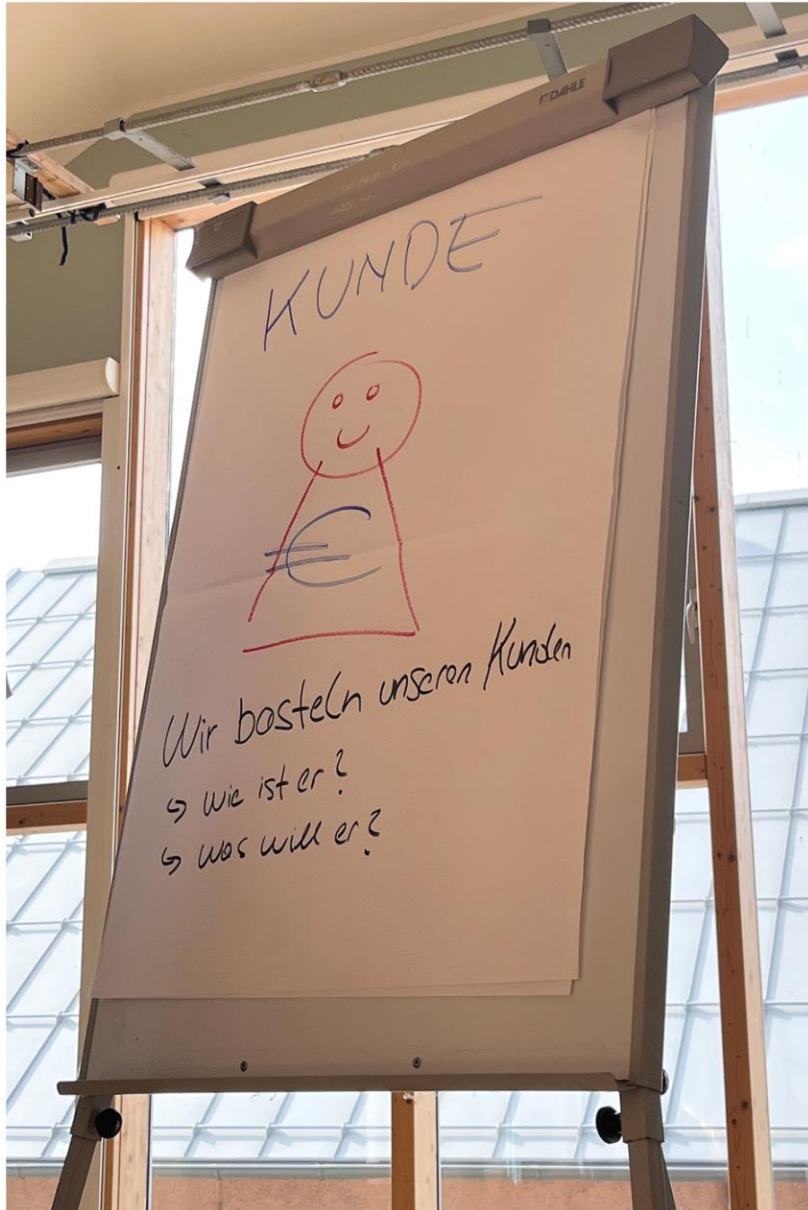 DAHLE
KUNDE
€
Wir basteln unseren Kunden
↳ wie ist er?
↳ was will er?